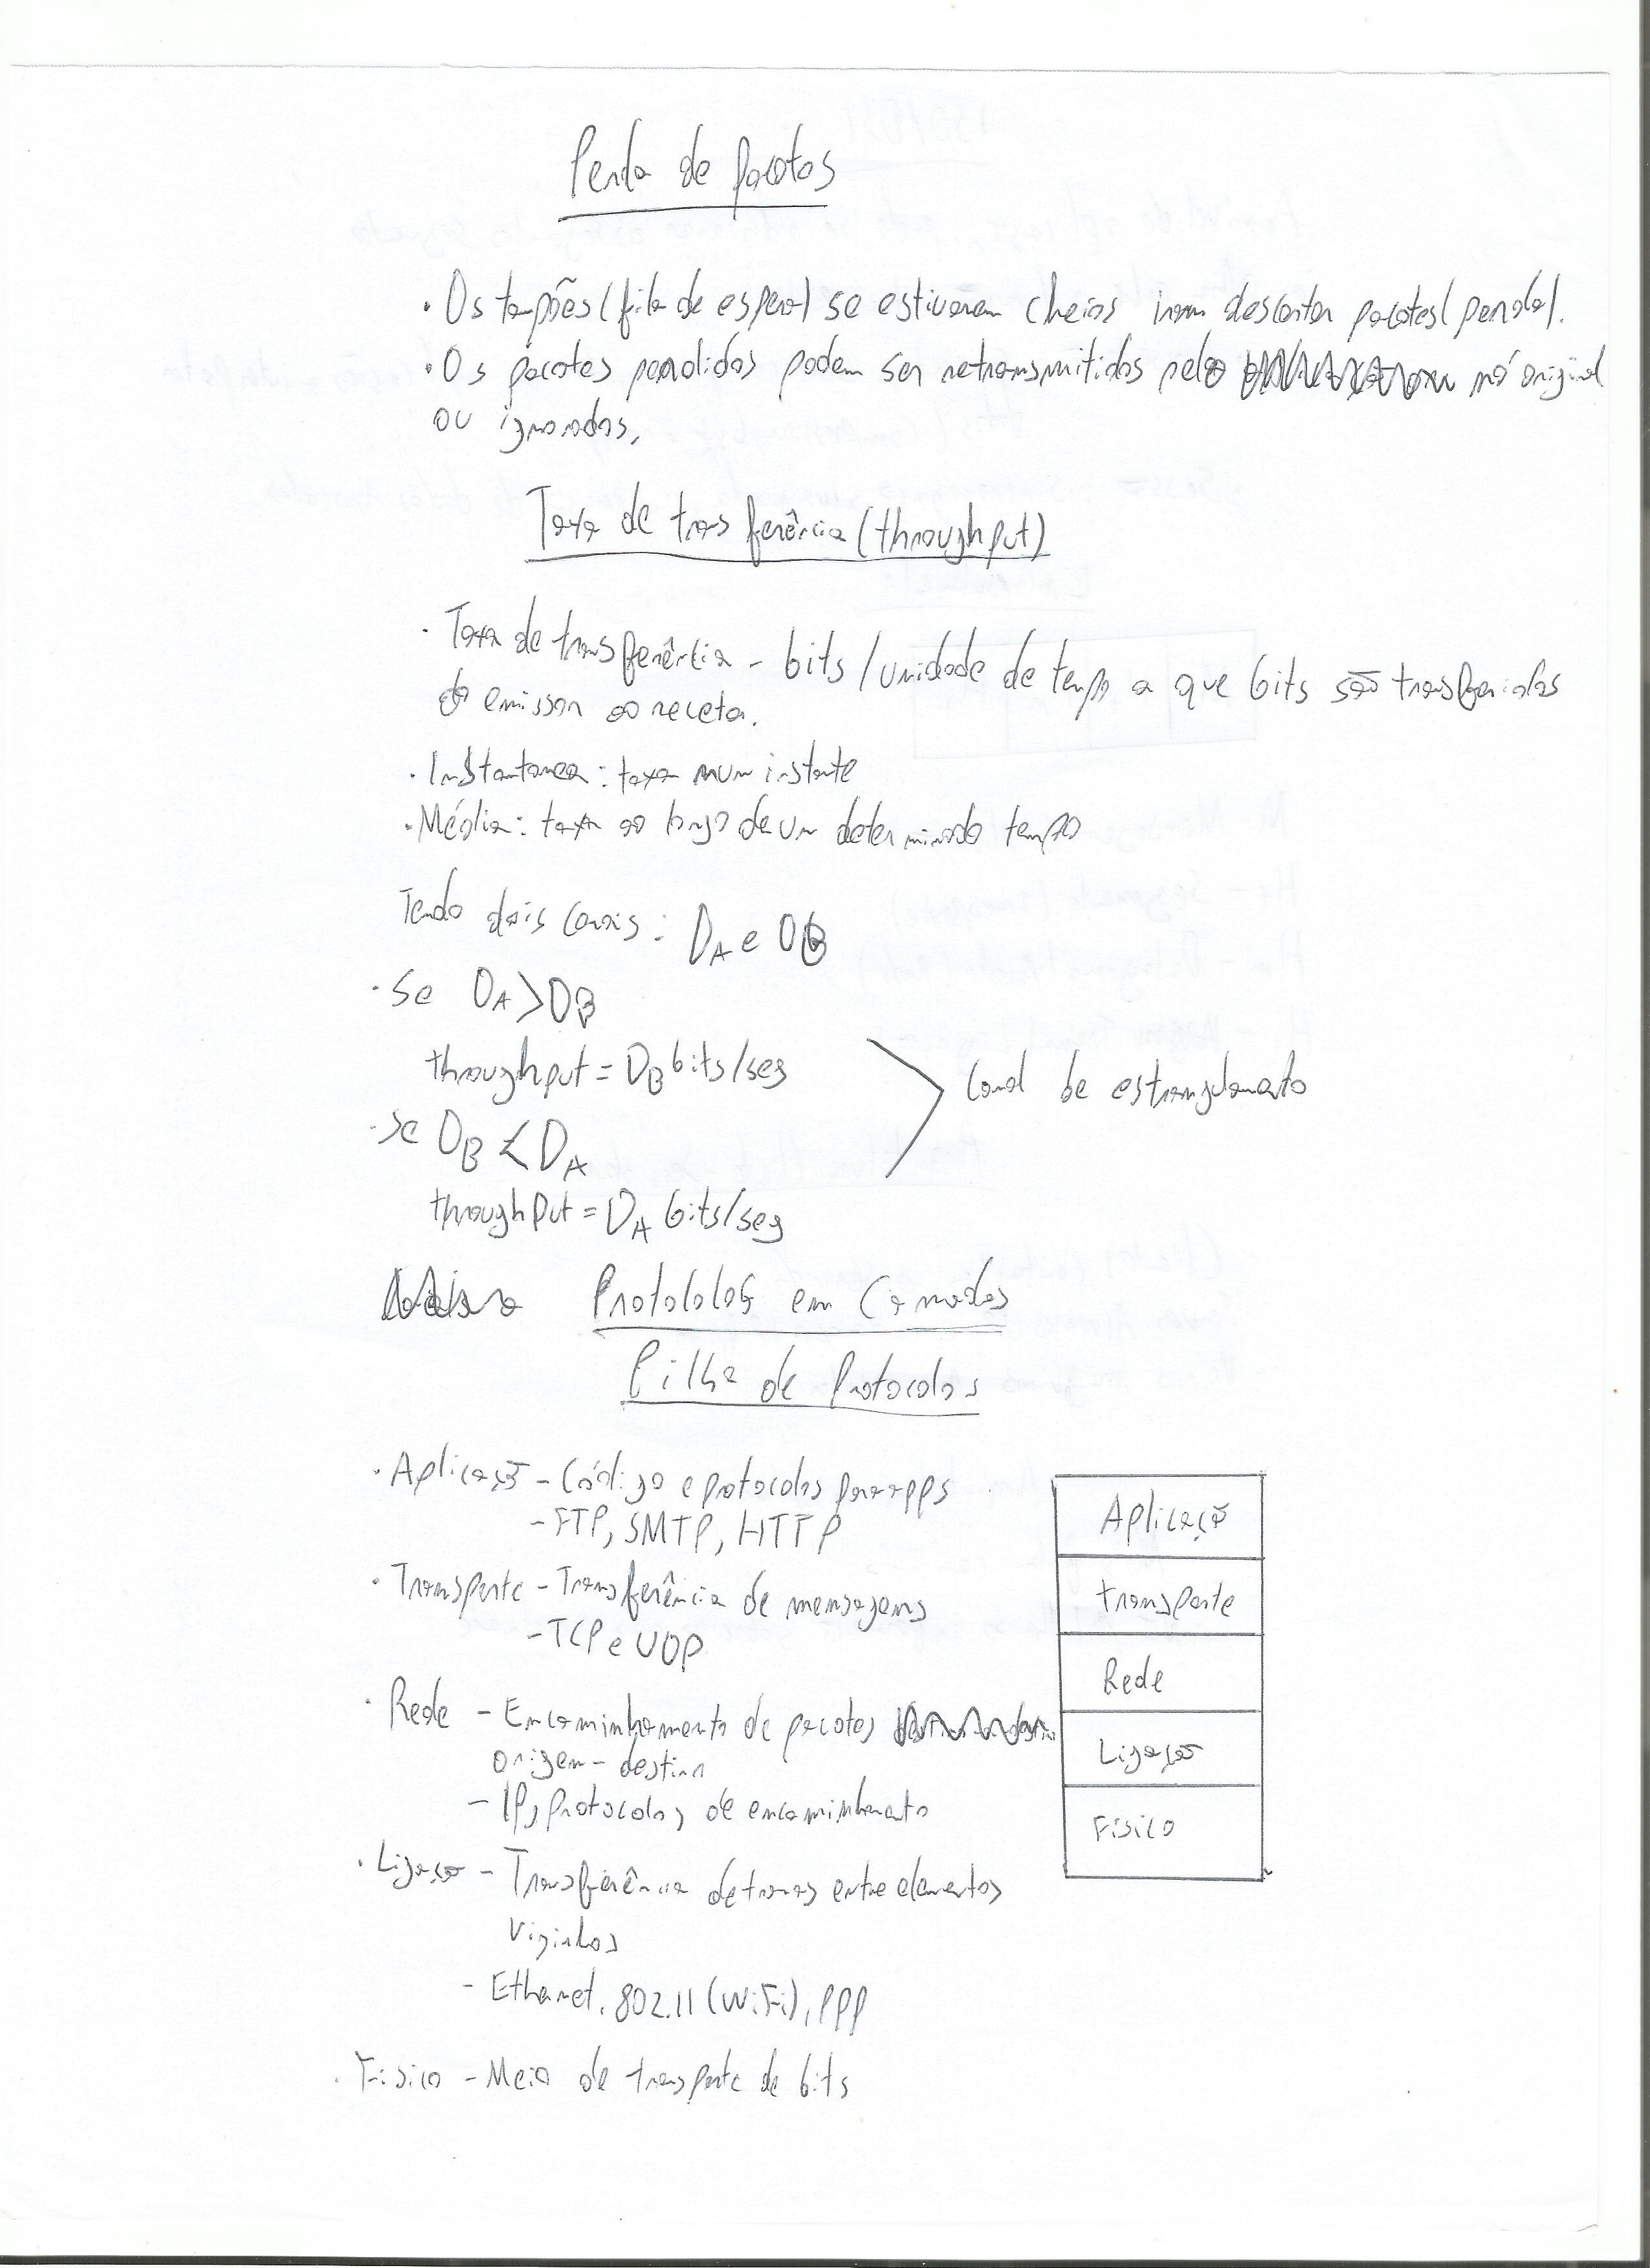 Perda de Pacotes
· Os tampões (fila de espera) se estiverem cheios iram descartar pacotes (perda).
· Os pacotes perdidos podem ser retransmitidos pelo nó original
ou ignorados.
Taxa de transferência (throughput)
· Taxa de transferência - bits/unidade de tempo a que bits são transferidos
do emissor ao receta.
· Instantanea: taxa num instante
· Média: taxa ao longo de um determinado tempo
Tendo dois canais: DA e DB
· Se DA > DB
throughput = DB bits/seg
· se DB < DA
throughput = DA bits/seg
Canal de estrangulamento
Protololos em Camadas
Pilha de Protocolos
· Aplicação - Código e protocolos para apps
- FTP, SMTP, HTTP
· Transporte - Transferência de mensagens
- TCP e UDP
· Rede - Encaminhamento de pacotes
origem - destino
- IP, protocolos de encaminhamento
· Ligação - Transferência de tramas entre elementos
vizinhos
- Ethernet, 802.11 (WiFi), PPP
· Fisico - Meio de transporte de bits
Aplicação
transporte
Rede
Ligação
Fisico